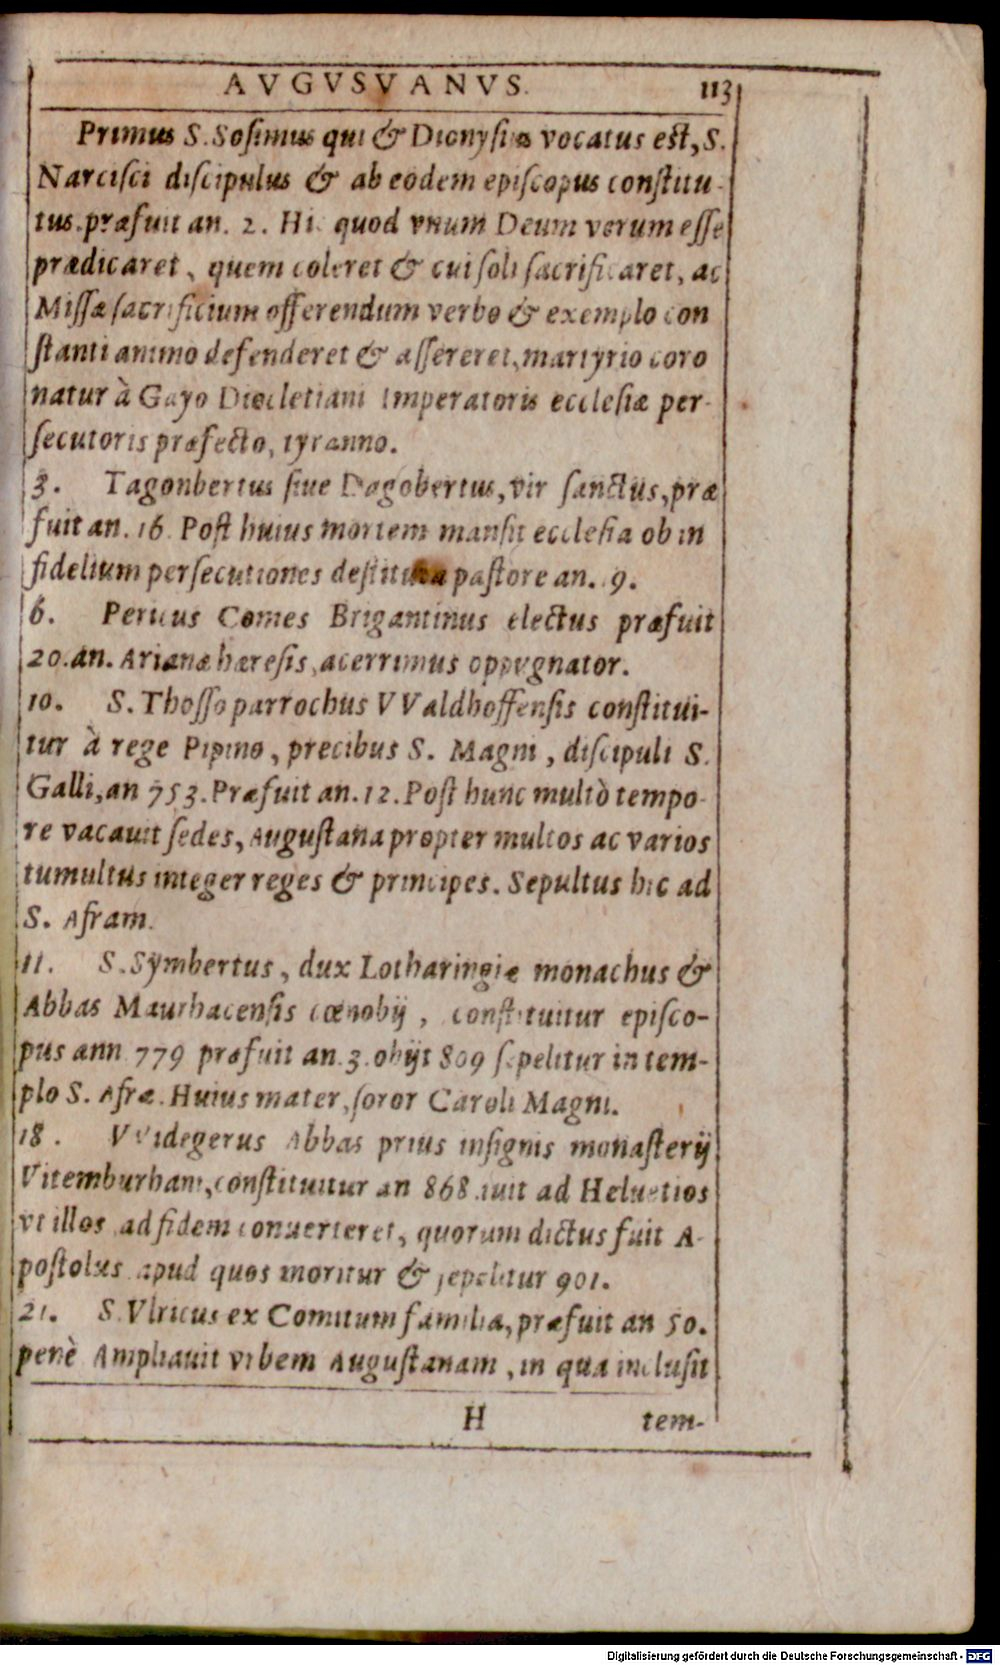 AVGVSVANVS. 113
Primus S. Sosimus qui & Dionysius vocatus est, S.
Narcisci discipulus & ab eodem episcopus constitu-
tus. præfuit an. 2. Hic quod vnum Deum verum esse
prædicaret, quem coleret & cui soli sacrificaret, ac
Missæ sacrificium offerendum verbo & exemplo con
stanti animo defenderet & assereret, martyrio coro
natur à Gayo Diocletiani Imperatoris ecclesiæ per-
secutoris præfecto, tyranno.
3. Tagonbertus siue Dagobertus, vir sanctus, præ
fuit an. 16. Post huius mortem mansit ecclesia ob in
fidelium persecutiones destituta pastore an. 9.
6. Pericus Comes Brigantinus electus præfuit
20. an. Arianæ hæresis, acerrimus oppvgnator.
10. S. Thosso parrochus VValdhoffensis constitui-
tur à rege Pipino, precibus S. Magni, discipuli S.
Galli, an 753. Præfuit an. 12. Post hunc multò tempo-
re vacauit sedes, Augustana propter multos ac varios
tumultus integer reges & principes. Sepultus hic ad
S. Afram.
11. S. Symbertus, dux Lotharingiæ monachus &
Abbas Maurhacensis cœnobij, constituitur episco-
pus ann 779 præfuit an. 3. obijt 809 sepelitur in tem-
plo S. Afræ. Huius mater, soror Caroli Magni.
18. VVidegerus Abbas prius insignis monasterij
Vitemburhani, constituitur an 868. iuit ad Heluetios
vt illos ad fidem conuerteret, quorum dictus fuit A-
postolus apud quos moritur & sepelitur 901.
21. S. Vlricus ex Comitum familia, præfuit an 50.
penè Ampliauit vrbem Augustanam, in qua inclusit
H tem-
Digitalisierung gefördert durch die Deutsche Forschungsgemeinschaft - DFG